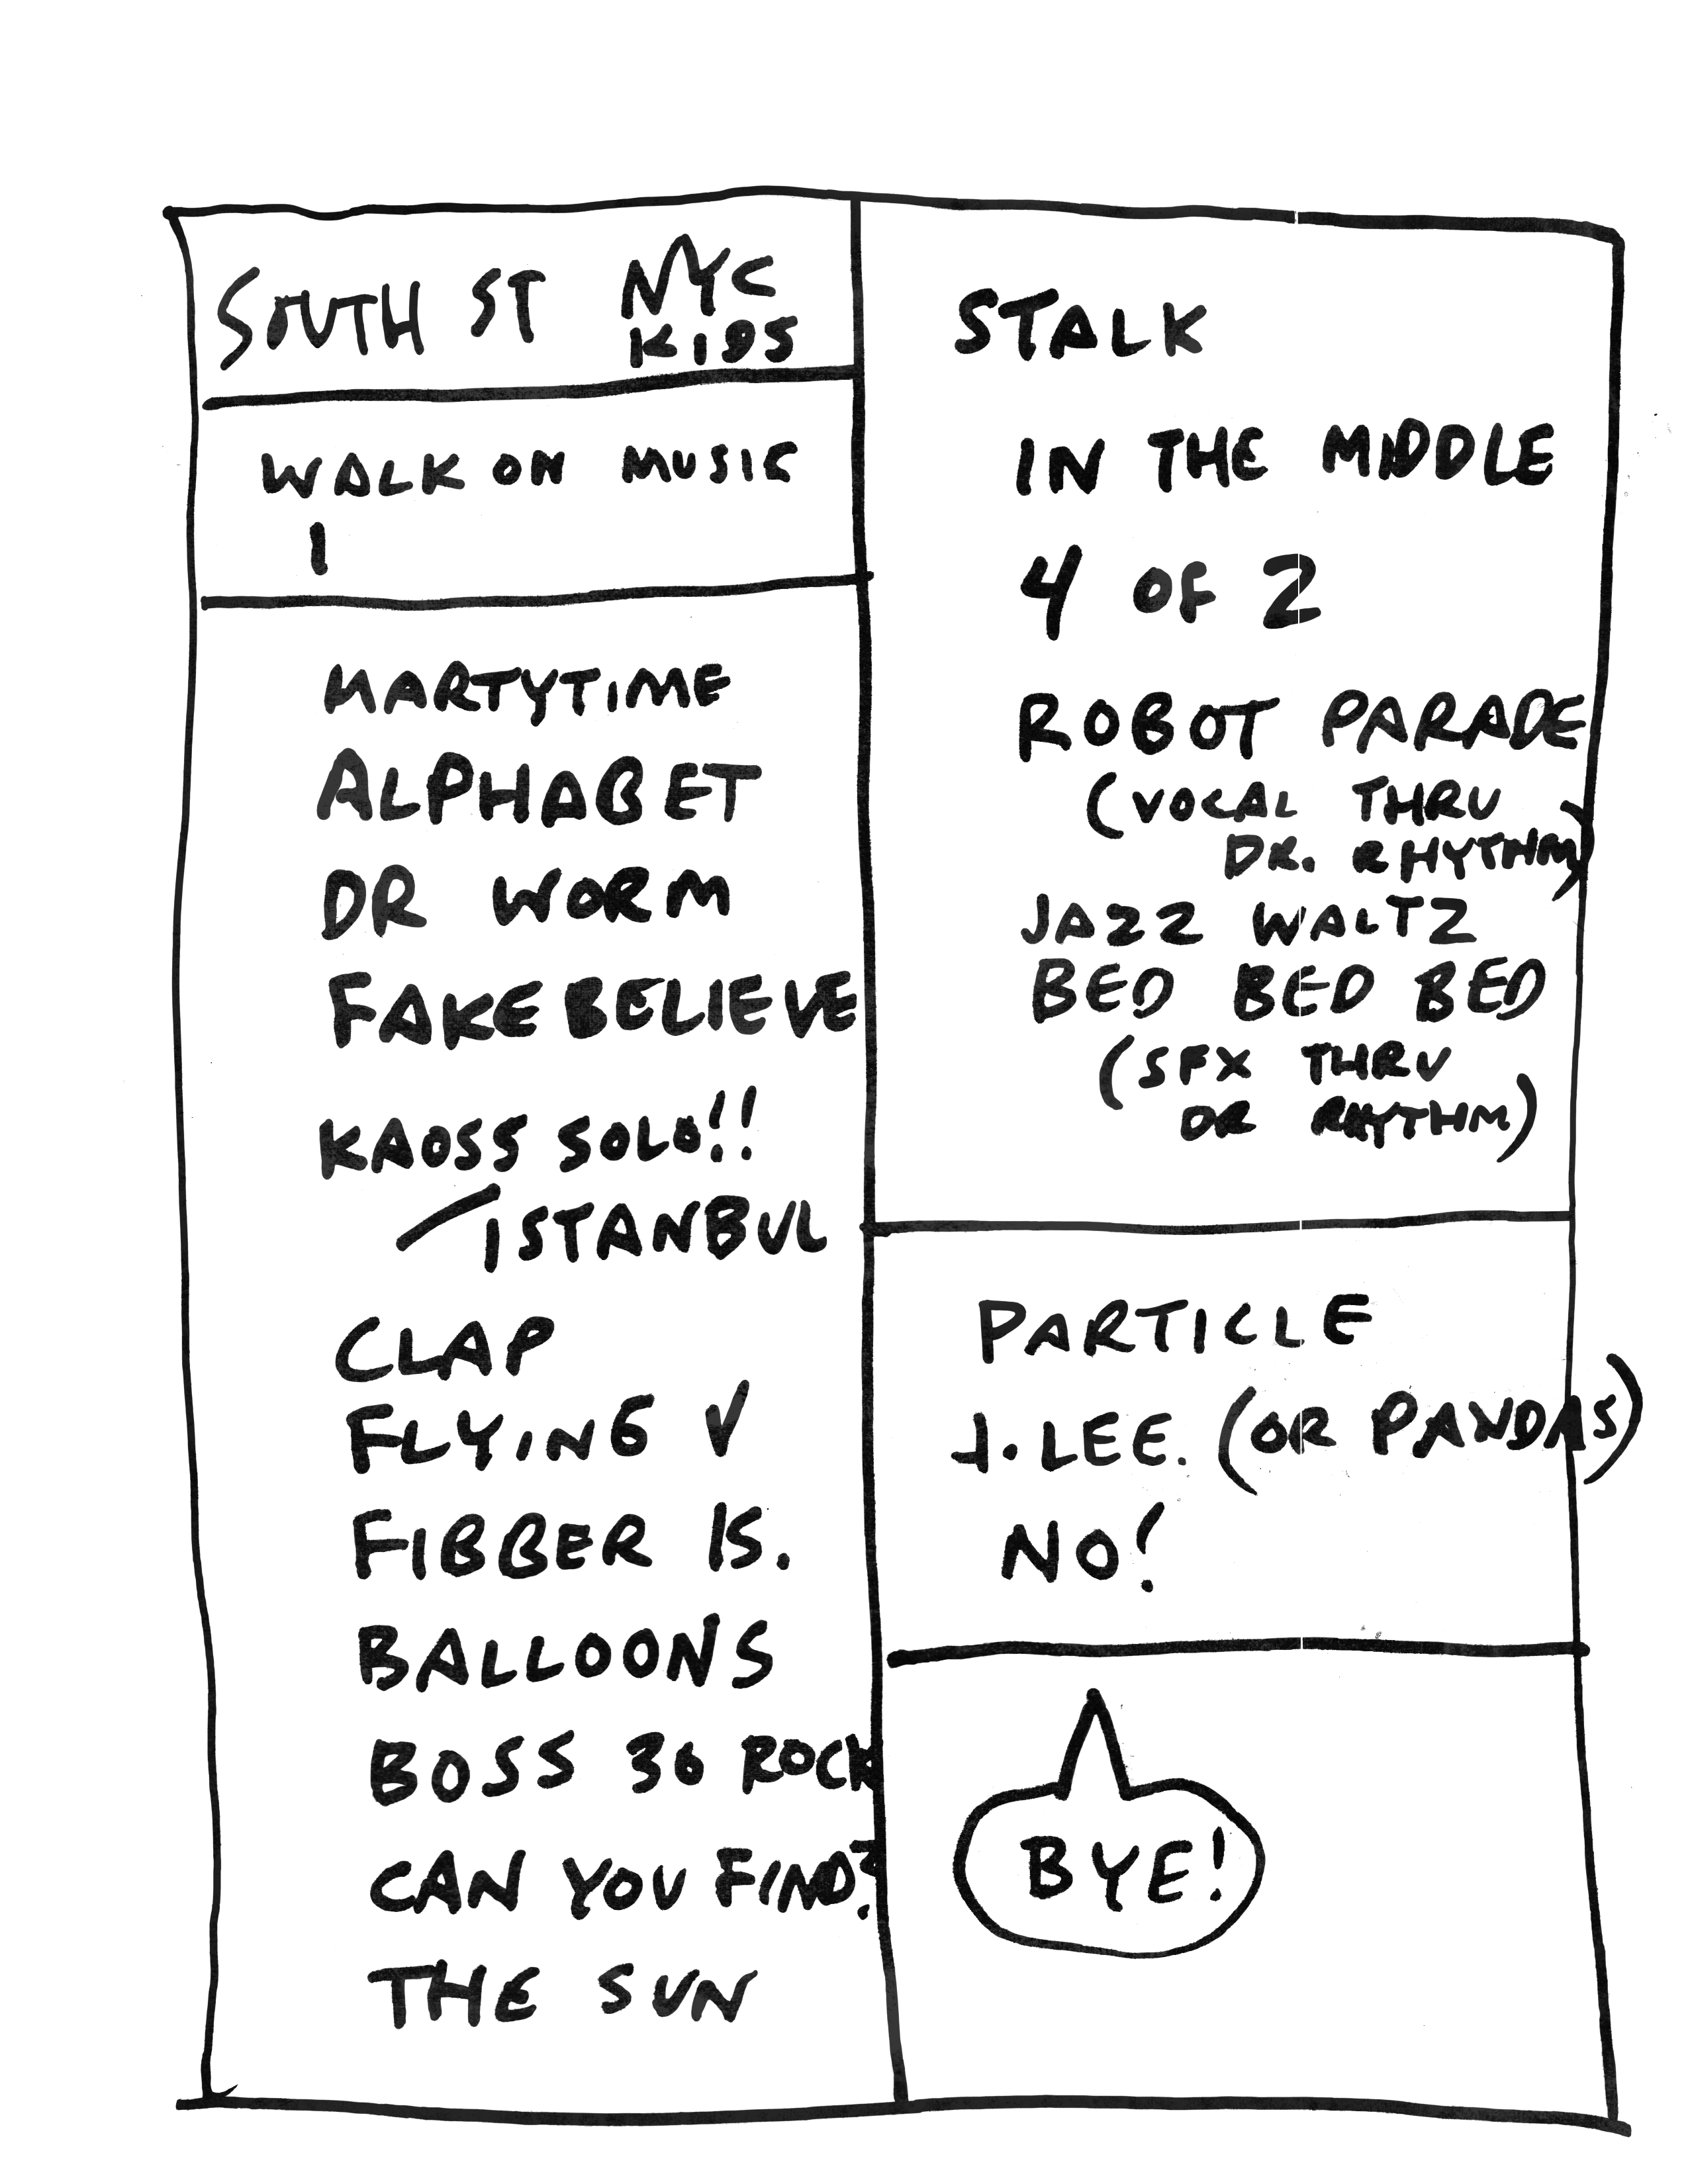 SOUTH ST NYC
KIDS
WALK ON MUSIC
1
MARTYTIME
ALPHABET
DR WORM
FAKEBELIEVE
KAOSS SOLO!!
/ISTANBUL
CLAP
FLYING V
FIBBER IS.
BALLOONS
BOSS 36 ROCK
CAN YOU FIND?
THE SUN
STALK
IN THE MIDDLE
4 OF 2
ROBOT PARADE
(VOCAL THRU
DR. RHYTHM)
JAZZ WALTZ
BED BED BED
(SFX THRU
DR RHYTHM)
PARTICLE
J. LEE. (OR PANDAS)
NO!
BYE!